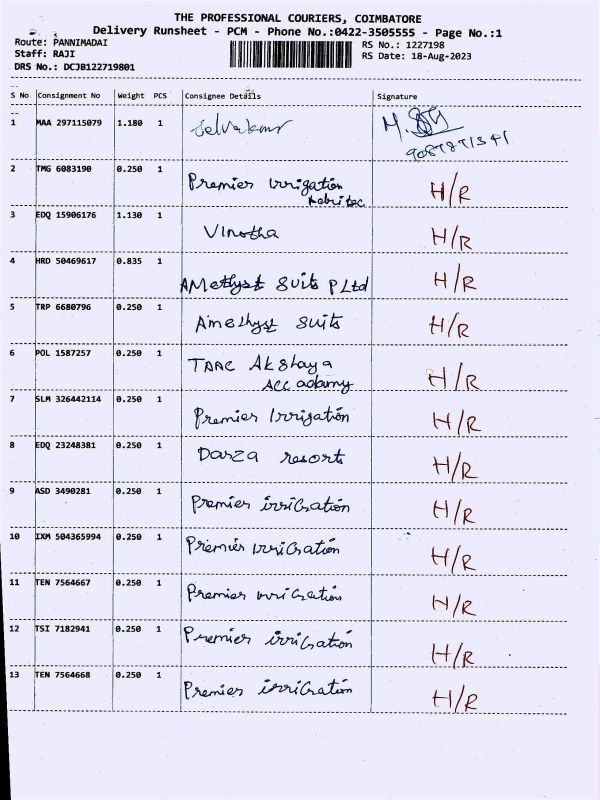 THE PROFESSIONAL COURIERS, COIMBATORE
Delivery Runsheet - PCM - Phone No.:0422-3505555 - Page No.:1
Route: PANNIMADAI RS No.: 1227198
Staff: RAJI RS Date: 18-Aug-2023
DRS No.: DCJB122719801
S No Consignment No Weight PCS Consignee Details Signature
1 MAA 297115079 1.180 1 Selvakumar
2 TMG 6083190 0.250 1 Premier Irrigation H/R
3 EDQ 15906176 1.130 1 Vinotha H/R
4 HRD 50469617 0.835 1 AMethyst Suits P Ltd H/R
5 TRP 6680796 0.250 1 Amethyst Suits H/R
6 POL 1587257 0.250 1 Akshaya H/R
Acc adamy
7 SLM 326442114 0.250 1 Premier Irrigation H/R
8 EDQ 23248381 0.250 1 Darza resorts H/R
9 ASD 3490281 0.250 1 Premier irriGration H/R
10 IXM 504365994 0.250 1 Premier irriGration H/R
11 TEN 7564667 0.250 1 Premier irriGration H/R
12 TSI 7182941 0.250 1 Premier irriGration H/R
13 TEN 7564668 0.250 1 Premier irriGration H/R